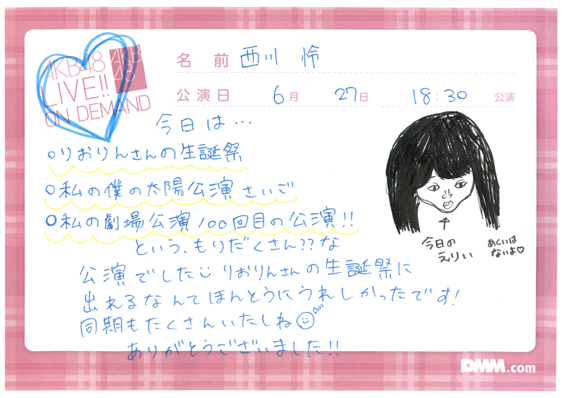 AKB48
LIVE!!
ON DEMAND
AKB
48
名前 西川 怜
公演日 6月 27日 18:30 公演
今日は…
○りおりんさんの生誕祭
○私の僕の太陽公演さいご
○私の劇場公演100回目の公演!!
という、もりだくさん??な
公演でした りおりんさんの生誕祭に
出れるなんてほんとうにうれしかったです!
同期もたくさんいたしね
ありがとうございました!!
今日の
えりい
あくいは
ないよ♡
DMM.com